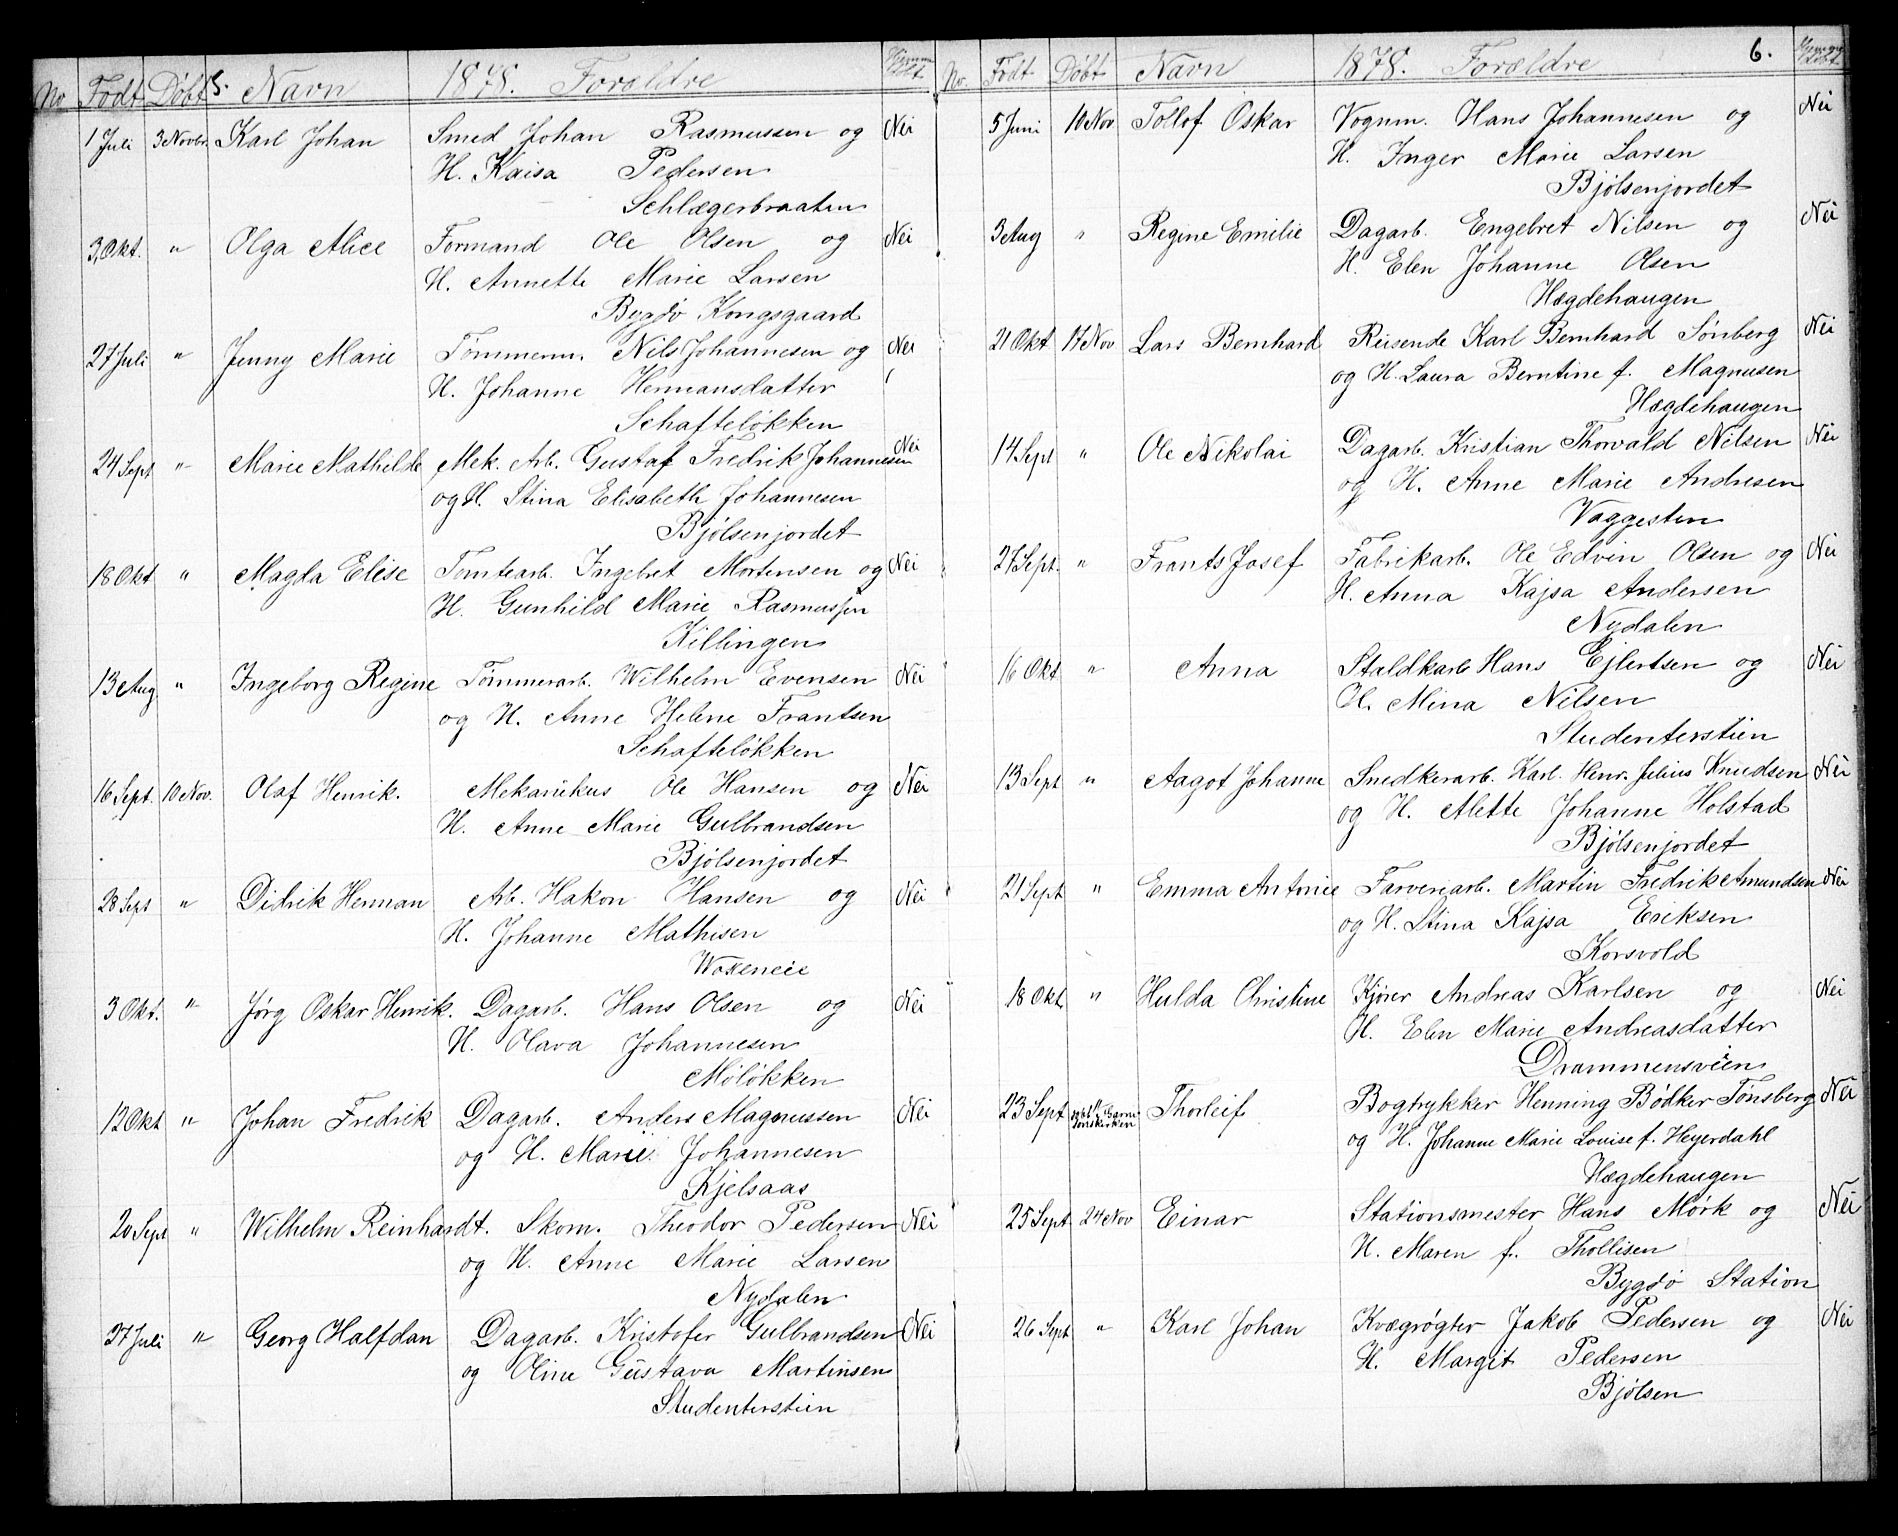 No Født Døbt 5. Navn 1878. Forældre Hjemme døbt.
1 Juli 3 Novbr. Karl Johan Smed Johan Rasmussen og Nei
H. Kaisa Pedersen
Schlægerbraaten
3, Okt. " Olga Alice Formand Ole Olsen og Nei
H. Annette Marie Larsen
Bygdø Kongsgaard
27 Juli " Jenny Marie Tømmerm. Nils Johannesen og Nei
H. Johanne Hermansdatter
Schafteløkken
24 Sept " Marie Mathilde Mek. Arb. Gustaf Fredrik Johannesen Nei
og H. Stina Elisabeth Johannesen
Bjølsenjordet
18 Okt " Magda Elise Tomtearb. Ingebret Mortensen og Nei
H. Gunhild Marie Rasmussen
Killingen
13 Aug " Ingeborg Regine Tømmerarb. Wilhelm Evensen Nei
og H. Anne Helene Frantsen
Schafteløkken
16 Sept. 10 Nov. Olaf Henrik. Mekanikus Ole Hansen og Nei
H. Anne Marie Gulbrandsen
Bjølsenjordet
28 Sept " Didrik Herman Arb. Hakon Hansen og Nei
H. Johanne Mathisen
Woxeneie
3 Okt. " Jørg Oskar Henrik. Dagarb. Hans Olsen og Nei
H. Olava Johannesen
Møløkken
12 Okt " Johan Fredrik Dagarb. Anders Magnussen Nei
og H. Marie Johannesen
Kjelsaas
20 Sept " Wilhelm Reinhardt. Skom. Theodor Pedersen Nei
og H. Anne Marie Larsen
Nydalen
27 Juli " Georg Halfdan Dagarb. Kristofer Gulbrandsen Nei
og Oline Gustava Martinsen
Studenterstien
No. Født Døbt Navn 1878. Forældre 6. Hjemme døbt.
5 Juni 10 Nov Tollof Oskar Vognm. Hans Johannesen og Nei
H. Inger Marie Larsen
Bjølsenjordet
3 Aug " Regine Emilie Dagarb. Engebret Nilsen og Nei
H. Elen Johanne Olsen
Hægdehaugen
21 Okt 17 Nov Lars Bernhard Reisende Karl Bernhard Sønberg Nei
og H. Laura Berntine f. Magnusen
Hægdehaugen
14 Sept " Ole Nikolai Dagarb. Kristian Thorvald Nilsen Nei
og H. Anne Marie Andresen
Vaggesten
27 Sept. " Frants Josef Fabrikarb. Ole Edvin Olsen og Nei
H. Anna Kajsa Andersen
Nydalen
16 Okt " Anna Staldkarl Hans Ejlertsen og Nei
H. Mina Nilsen
Studenterstien
13 Sept " Aagot Johanne Snedkerarb. Karl. Henr. Julius Knudsen Nei
og H. Alette Johanne Holstad
Bjølsenjordet
21 Sept " Emma Antonie Farveriarb. Martin Fredrik Amundsen Nei
og H. Stina Kajsa Eriksen
Korsvold
18 Okt " Hulda Christine Kjører Andreas Karlsen og Nei
H. Elen Marie Andreasdatter
Drammensveien
23 Sept Thorleif Bogtrykker Henning Bødker Tønsberg Nei
og H. Johanne Marie Louise f. Heyerdahl
Hægdehaugen
25 Sept 24 Nov Einar Stationsmester Hans Mørk og Nei
H. Maren f. Thollisen
Bygdø Station
26 Sept " Karl Johan Kvægrøgter Jakob Pedersen og Nei
H. Margit Pedersen
Bjølsen